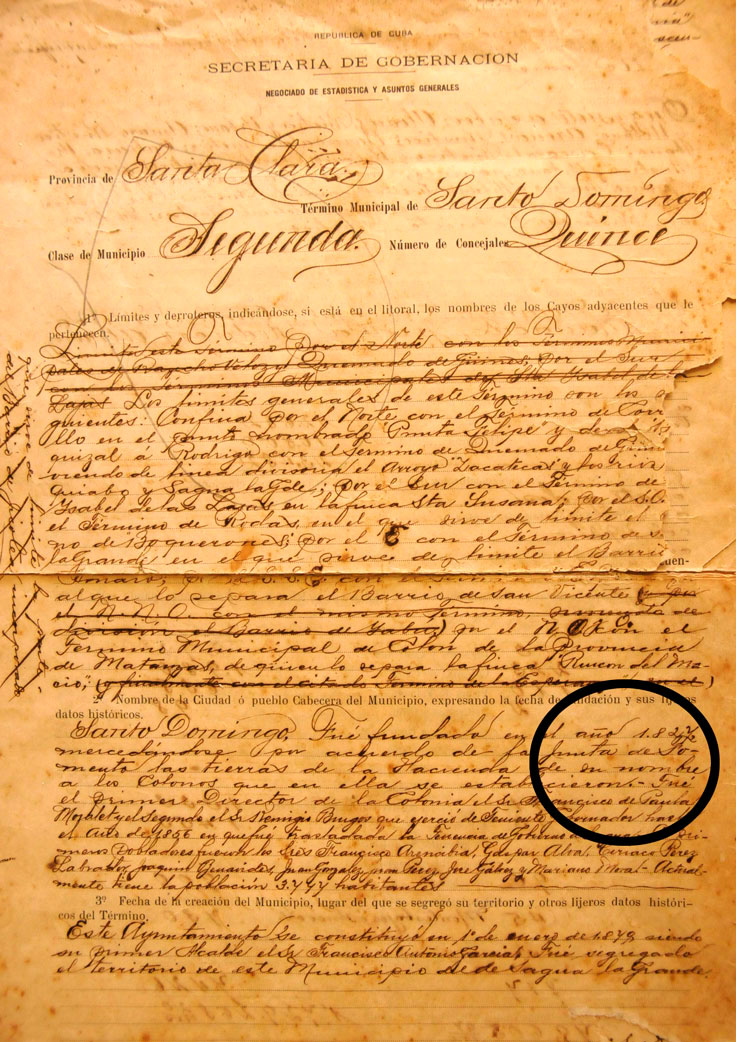 REPUBLICA DE CUBA
SECRETARIA DE GOBERNACION
NEGOCIADO DE ESTADISTICA Y ASUNTOS GENERALES
Provincia de Santa Clara
Término Municipal de Santo Domingo
Clase de Municipio Segunda. Número de Concejales Quince
1º Límites y derroteros, indicándose, si está en el litoral, los nombres de los Cayos adyacentes que le
pertenecen.
Limita este Término Por el Norte con los Terminos Munici
pales de Rancho Veloz y Quemado de Güines, por el Sur
Lajas Los limites generales de este Termino son los se
guientes: Confina por el Norte con el Termino de Corr
llo en el punto nombrado "Punta Felipe" y
Rodrigo con el Termino de Quemado de Güin
viendo de linea divisoria el Arroyo "Zacatecas" y los rios
y Sagua la Gde; Por el Sur con el Término de
Ysabel de las Lajas en la finca Sta Susana; Por el S.O.
el Termino de Rodas, en el que sirve de limite el
no de Boquerones; por el E con el Termino de S.
la Grande, en el que sirve de limite el Barrio
con el
al que lo separa el Barrio de San Vicente
el N.N.O. con el mismo Termino,
división el Barrio de
por el N.O. con el
Termino Municipal de Colon de la Provincia
de Matanzas, de quien lo separa la finca "Rincon del Ma
cio," (y finalmente con el citado Termino de la Esperanza en el)
2º Nombre de la Ciudad ó pueblo Cabecera del Municipio, expresando la fecha de fundación y sus lijeros
datos históricos.
Santo Domingo, Fué fundado en el año 1.827
mercedandose por acuerdo de la Junta de Fo-
mento las tierras de la Hacienda de su nombre
a los Colonos que en ella se establecieron.- Fué
el primer Director de la Colonia el Sr Francisco de Paula
Moralet y el segundo el Sr Remigio Burgos que ejerció de Teniente Gobernador hasta
el Año de 1856 en que fué trasladada la Tenencia de Gobierno
meros Pobladores fueron los Sres Francisco Arenabia, Gaspar Alva, Ciriaco Perez
Labrador, Joaquin Genarides, Juan Gonzalez, Juan Perez, José Galvez y Mariano Mora.- Actual-
mente tiene la población 3.747 habitantes
3º Fecha de la creación del Municipio, lugar del que se segregó su territorio y otros lijeros datos históri-
cos del Término.
Este Ayuntamiento se constituyó en 1º de enero de 1.879 siendo
su primer Alcalde el Sr Francisco Antonio Garcia, Fué segregado
el territorio de este Municipio del de Sagua la Grande.